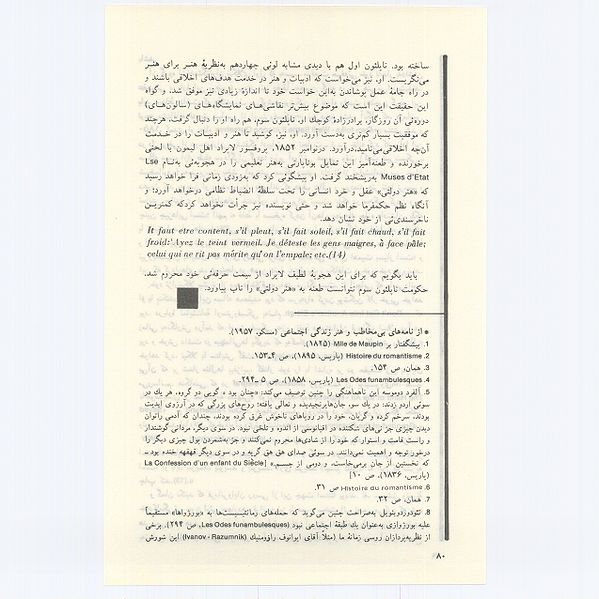 ساخته بود. ناپلئون اول هم با دیدی مشابه لوئی چهاردهم به‌نظریهٔ هنـر برای هنـر
می‌نگریست. او، نیز می‌خواست که ادبیات و هنر در خدمت هدف‌های اخلاقی باشند و
در راه جامهٔ عمل پوشاندن به‌این خواست خود تا اندازهٔ زیادی نیز موفق شد. و گواه
این حقیقت این است که موضوع بیش‌تر نقاشی‌های نمایشگاه‌های (سالون‌های)
دوره‌ئی آن روزگار. برادرزادهٔ کوچك او، ناپلئون سوم، هم راه او را دنبال گرفت، هرچند
که موفقیت بسیار کم‌تری به‌دست آورد. او، نیز، کوشید تا هنر و ادبیـات را در خـدمت
آن‌چه اخلاقی‌می‌نامید،درآورد. درنوامبر ۱۸۵۲، پروفسور لاپراد اهل لیمون با لحنی
برخورنده و طعنه‌آمیز این تمایل بوناپارتی به‌هنر تعلیمی را در هجویه‌ئی به‌نـام Lse
Muses d'Etat به‌ریشخند گرفت. او پیشگوئی کرد که به‌زودی زمانی فرا خواهد رسید
که «هنر دولتی» عقل و خرد انسانی را تحت سلطهٔ انضباط نظامی درخواهد آورد؛ و
آنگاه نظم حکمفرما خواهد شد و حتی نویسنده نیز جرأت نخواهد کردکه کمتریـن
ناخرسندی‌ئی از خود نشان دهد.
It faut etre content, s'il pleut, s'il fait soleil, s'il fait chaud, s'il fait
froid:'Ayez le teint vermeil. Je déteste les gens maigres, à face pâle;
celui qui ne rit pas mérite qu'on l'empale; etc.(14)
باید بگویم که برای این هجویهٔ لطیف لاپراد از سمت حرفه‌ئی خود محروم شد.
حکومت ناپلئون سوم نتوانست طعنه به «هنر دولتی» را تاب بیاورد.
● از نامه‌های بی‌مخاطب و هنر زندگـی اجتماعی (مسکو، ۱۹۵۷).
1. پیشگفتار بر Mlle de Maupin (۱۸۲۵).
2. Histoire du romantisme (پاریس، ۱۸۹۵)، ص ۴ـ۱۵۳.
3. همان، ص ۱۵۴.
4. Les Odes funambulesques (پاریس، ۱۸۵۸)، ص ۵ ـ۲۹۴.
5. آلفرد دوموسه این ناهماهنگی را چنین توصیف می‌کند: «چنان بود ، گویی دو گروه، هر یك در
سوئی اردو زدند: در یك سو، جان‌هایرنجدیده و تعالی یافته؛ روح‌های بزرگی که در آرزوی ابدیت
بودند، سرخم کرده و گریان، خود را در رویاهای ناخوش غرق کرده بودند، چندان که آدمی راتوان
دیدن چیزی جز نی‌های شکننده در اقیانوسی از اندوه و تلخی نبود. در سوی دیگر، مردانی گوشتدار
و راست قامت و استوار که خود را از شادی‌ها محروم نمی‌کنند و جز به‌شمردن پول چیزی دیگر را
درخور توجه و اهمیت نمی‌دانند. در سوئی صدای هق هق گریه و در سوی دیگر قهقهه خنده بود ــ
که نخستین از جان برمی‌خاست، و دومی از جسم.» [La Confession d'un enfant du Siècle
(پاریس، ۱۸۳۶)، ص ۱۰]
6. Histoire du romantisme ص ۳۱.
7. همان، ص ۳۲.
8. تئودوردوبنویل به‌صراحت چنین می‌گوید که حمله‌های رمانتیسیست‌ها به «بورژواها» مستقیماً
علیه بورژوازی به‌عنوان یك طبقهٔ اجتماعی نبود (Les Odes funambulesques، ص ۲۹۴). برخی
از نظریه‌پردازان روسی زمانهٔ ما (مثلاً آقای ایوانوف راؤومنیك Ivanov - Razumnik) این شورش
۸۰